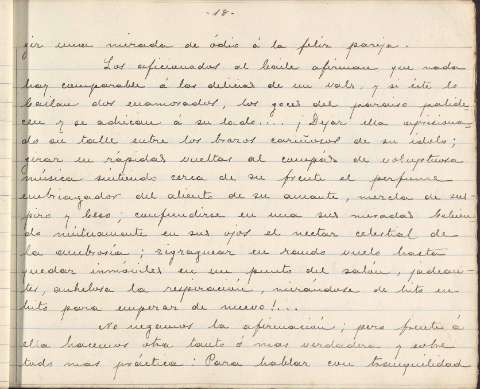 -18-
gir una mirada de ódio á la feliz pareja.
Los aficionados al baile afirman que nada
hay comparable á las delicias de un vals, y si éste lo
bailan dos enamorados, los goces del paraiso palide-
cen y se achican á su lado.... ¡Dejar ella aprisiona-
do su talle entre los brazos cariñosos de su ídolo;
girar en rápidas vueltas al compás de voluptuosa
música sintiendo cerca de su frente el perfume
embriagador del aliento de su amante, mezcla de sus-
piro y beso; confundirse en una sus miradas bebien-
do mútuamente en sus ojos el nectar celestial de
la ambrosía; zigzaguear en raudo vuelo hasta
quedar inmóviles en un punto del salón, jadean-
tes, anhelosa la respiración, mirándose de hito en
hito para empezar de nuevo!...
No negamos la afirmación; pero frente á
ella hacemos otra tanto ó mas verdadera y sobre
todo mas práctica: Para hablar con tranquilidad